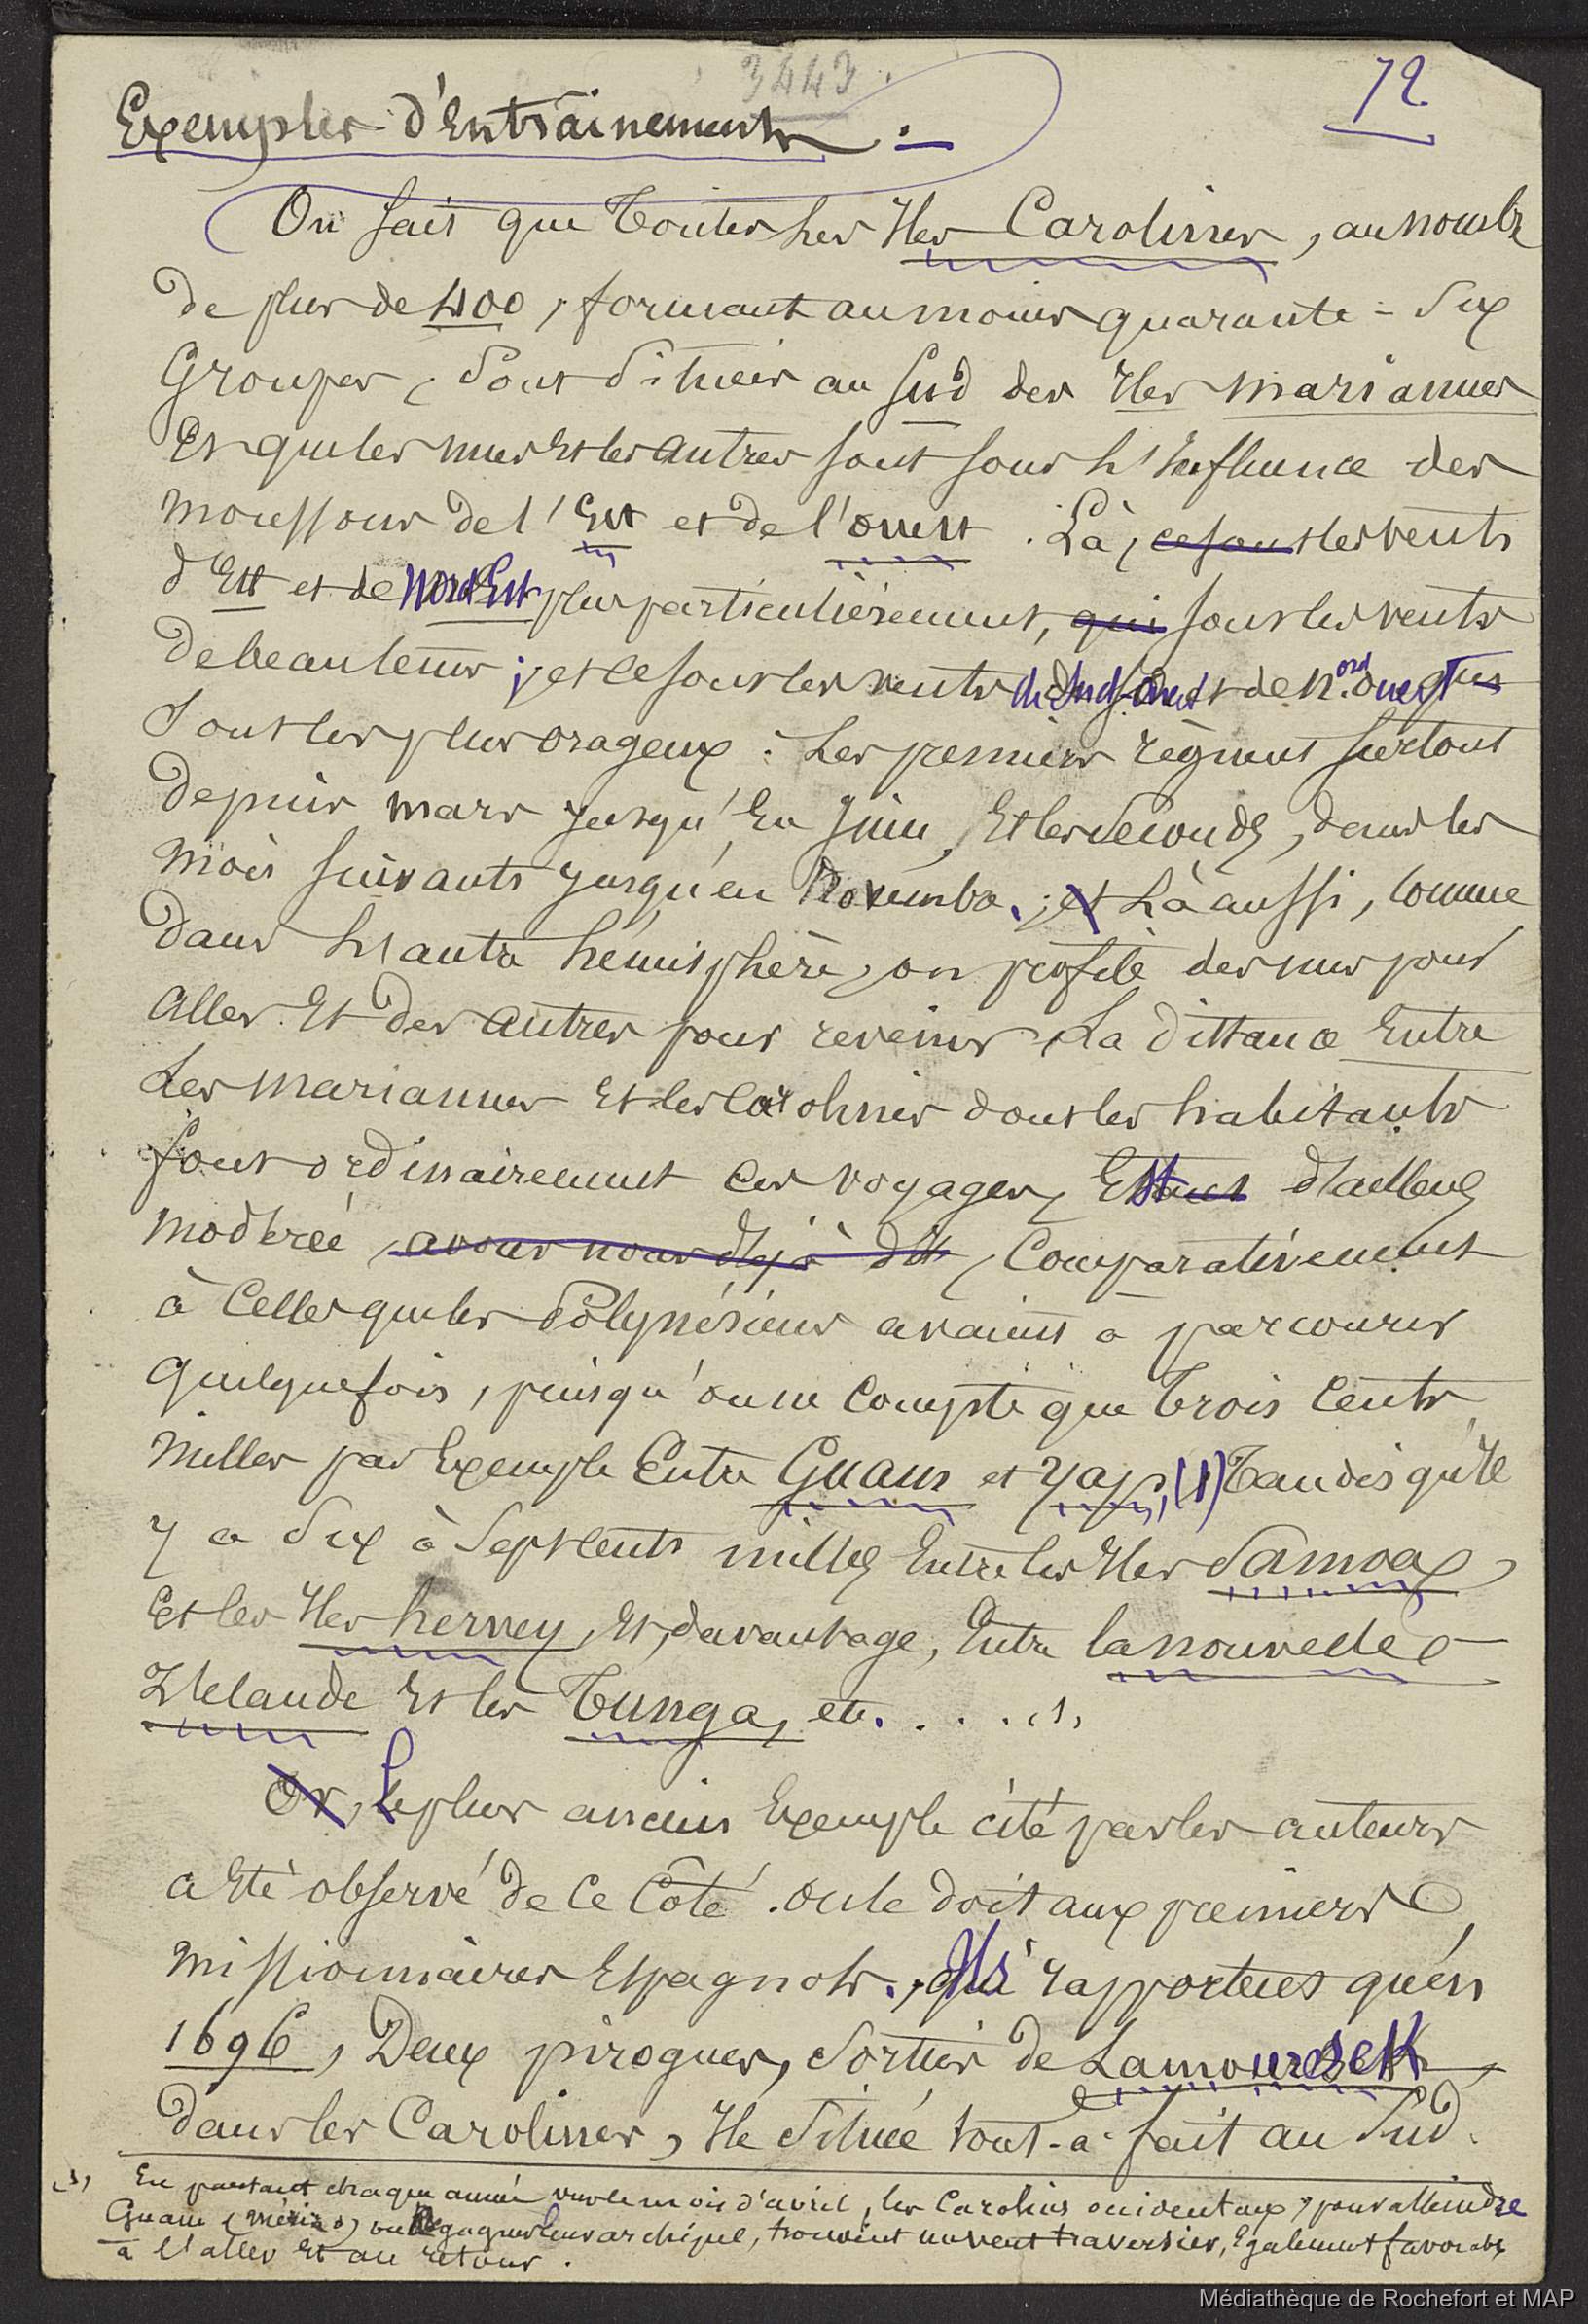 3443.
72
Exemples d'Entrainements :_
On sait que toutes les Iles Carolines, au nombre
de plus de 400, formant au moins quarante-six
Groupes, sont situées au sud des Iles mariannes
Et que les unes Et les autres sont sous l'Influence des
moussons de l'Est et de l'ouest. Là, ce sont les vents
d'Est et de Nord Est plus particulièrement, qui sont les vents
de beau tems ; et ce sont les vents de Sud-ouest et de nord ouest qui
sont les plus orageux : Les premiers règnent surtout
depuis mars jusqu'En Juin, Et les seconds, dans les
mois suivants jusqu'en Novembre. ; et Là aussi, comme
dans l'autre hémisphère, on profite des uns pour
aller Et des autres pour revenir. La distance Entre
Les mariannes Et les Carolines dont les habitants
font ordinairement ces voyages, Est d'ailleurs
modérée, avons nous déjà dit, Comparativement
à Celles que les Polynésiens avaient à parcourir
Quelquefois, puisqu'on ne compte que trois Cents
milles par Exemple Entre Guam et Yap, (1) Tandis qu'Il
y a Six à Sept cents milles Entre les Iles Samoa,
Et les Iles hervey, Et, davantage, Entre la nouvelle
Zélande Et les Tunga, etc. . . . (1)
Or, Le plus ancien Exemple cité par les auteurs
a Eté observé de ce Côté. on le doit aux premiers
missionnaires Espagnols., Ils rapportent qu'en
1696, Deux pirogues, sorties de Lamoursek
dans les Carolines, Ile située tout-à-fait au Sud.
(1) En partant chaque année vers le mois d'avril, les Carolins occidentaux, pour atteindre
Guam ou Regagner leur archipel, trouvent un vent traversier, Egalement favorable
à l'aller Et au retour.
Médiathèque de Rochefort et MAP